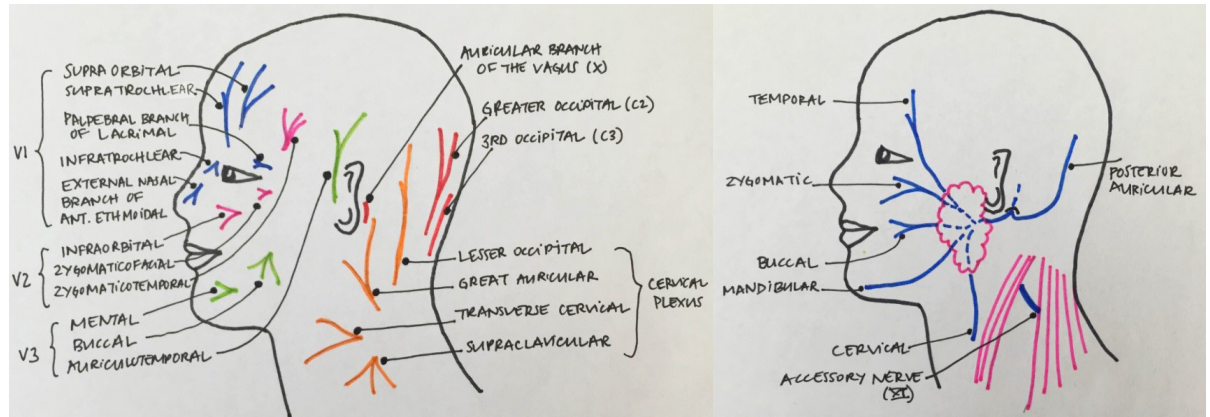 V1
SUPRA ORBITAL
SUPRATROCHLEAR
PALPEBRAL BRANCH
OF LACRIMAL
INFRATROCHLEAR
EXTERNAL NASAL
BRANCH OF
ANT. ETHMOIDAL
V2
INFRAORBITAL
ZYGOMATICOFACIAL
ZYGOMATICOTEMPORAL
V3
MENTAL
BUCCAL
AURICULOTEMPORAL
AURICULAR BRANCH
OF THE VAGUS (X)
GREATER OCCIPITAL (C2)
3RD OCCIPITAL (C3)
LESSER OCCIPITAL
GREAT AURICULAR
TRANSVERSE CERVICAL
SUPRACLAVICULAR
CERVICAL
PLEXUS
TEMPORAL
ZYGOMATIC
BUCCAL
MANDIBULAR
CERVICAL
ACCESSORY NERVE
(XI)
POSTERIOR
AURICULAR